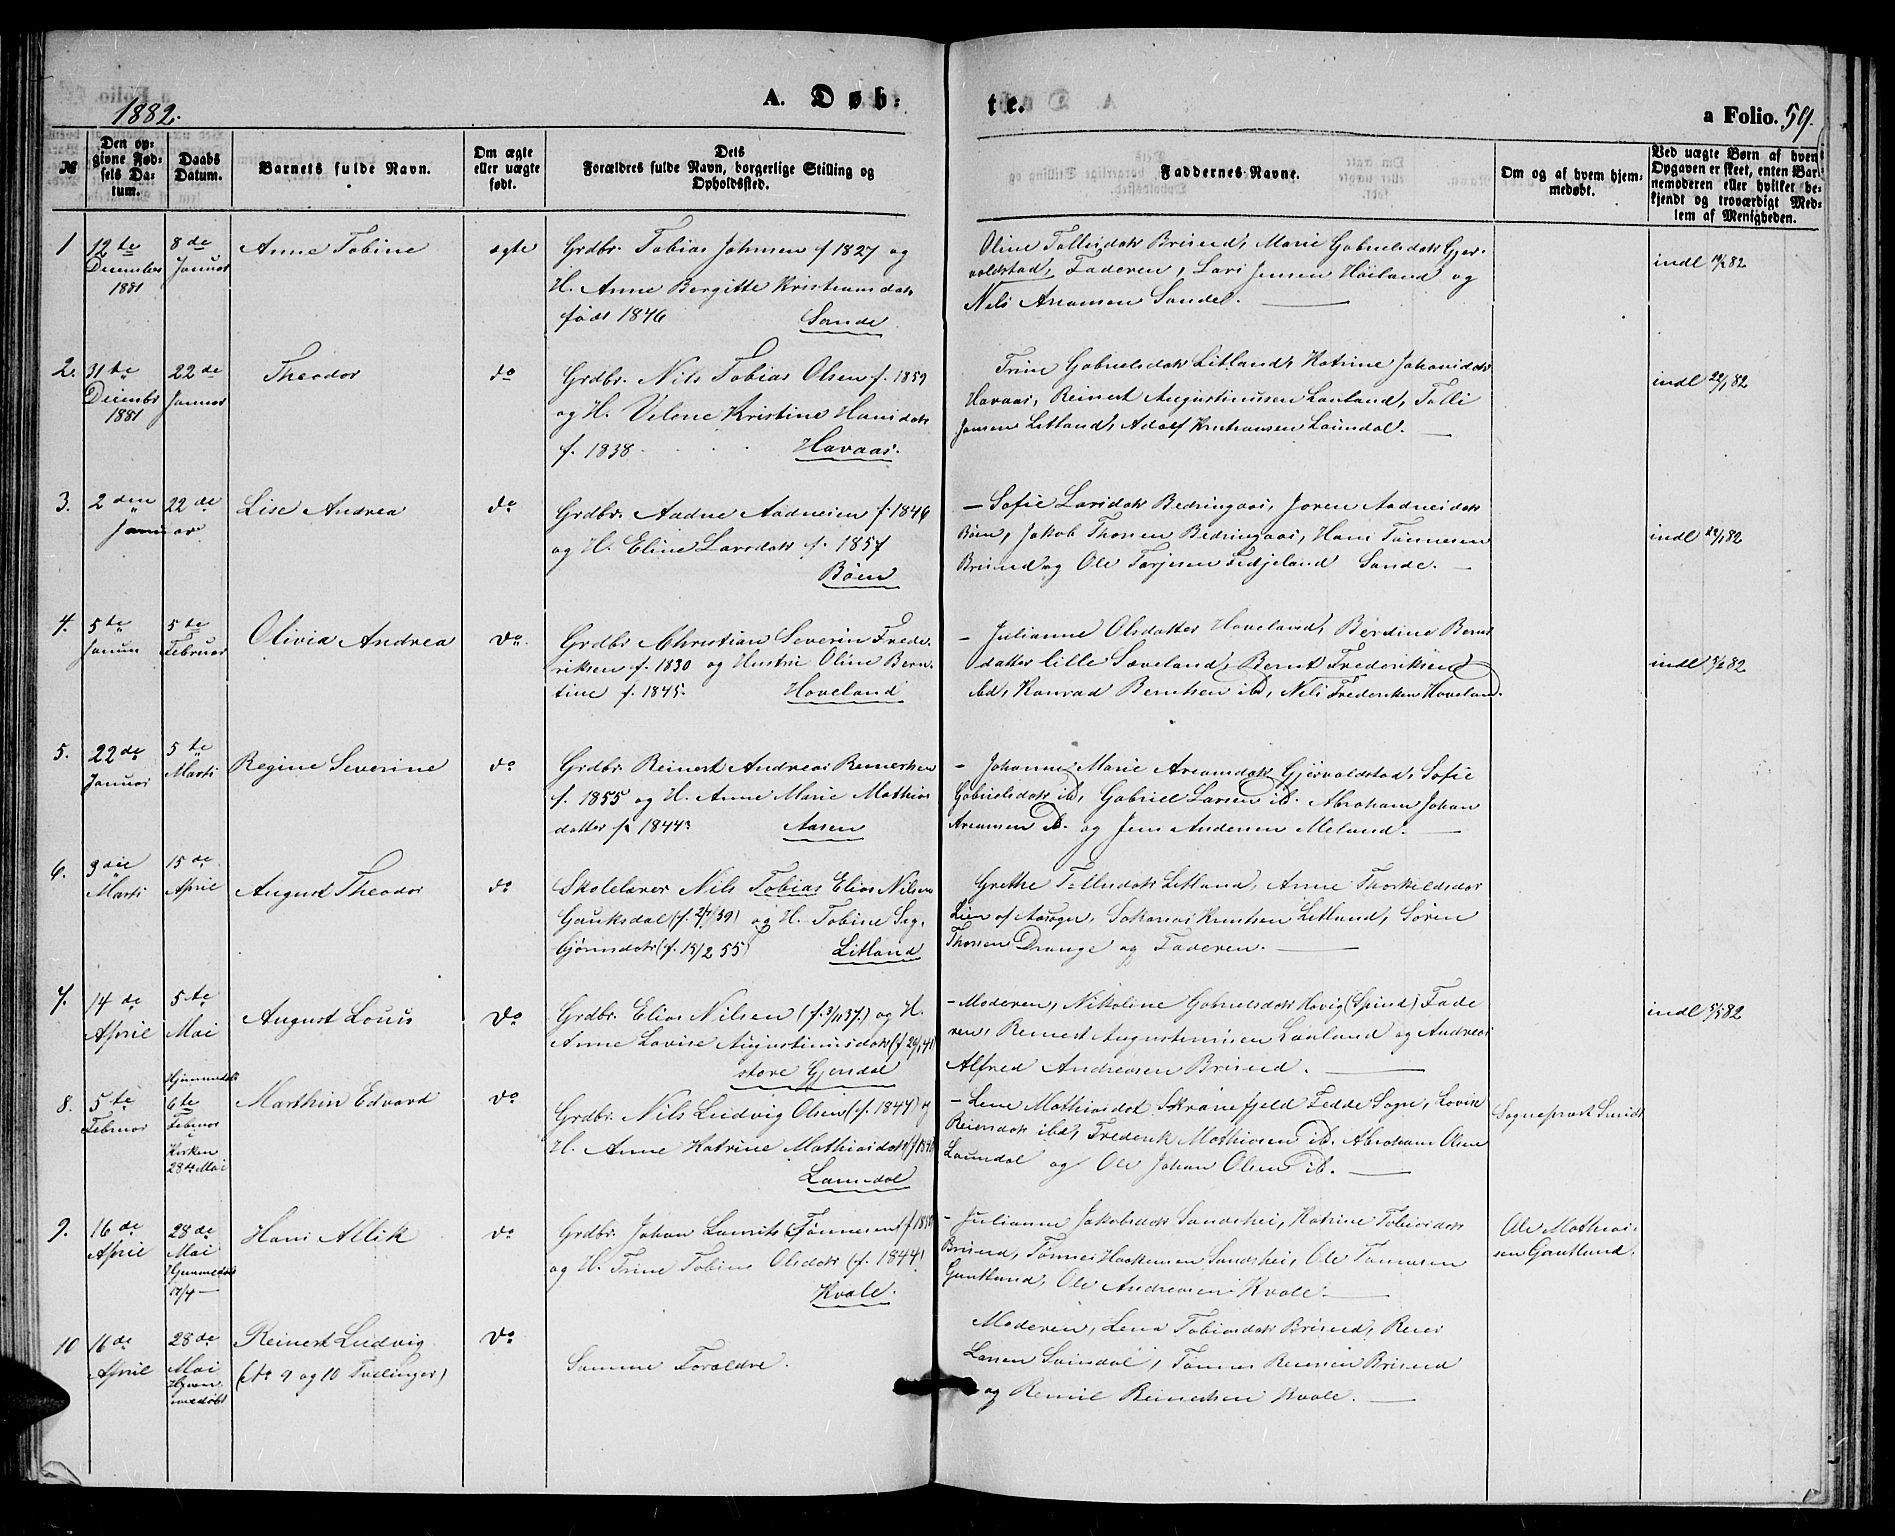 1882.
A. Døb-
te.
a Folio. 59.
№
Den op-
givne Fød-
sels Da-
tum.
Daabs
Datum.
Barnets fulde Navn.
Om ægte
eller uægte
født.
Dets
Forældres fulde Navn, borgerlige Stilling og
Opholdssted.
Faddernes Navne.
Om og af hvem hjem-
medøbt.
Ved uægte Børn af hvem
Opgaven er skeet, enten Bar-
nemoderen eller hvilket be-
kjendt og troværdigt Med-
lem af Menigheden.
1
12te
December
1881
8de
Januar
Anne Tobine
ægte
Grdbr. Tobias Johnsen f 1827 og
H. Anne Bergitte Kristiansdatr
født 1846
Sande.
Oline Tollisdatr Brisend, Marie Gabrielsdatr Gjer-
voldstad, Faderen, Lars Jensen Høiland og
Nils Aramsen Sandel.
indl 82
2.
31te
Decembr
1881
22de
Januar
Theodor
do
Grdbr. Nils Tobias Olsen f. 1859
og H. Vilene Kristine Hansdatr
f. 1838
Havaas.
Trine Gabrielsdatr Litland, Katrine Johanisdatr
Havaas, Reinert Augustinussen Lauland, Tolli
Jansen Litland, Adolf Kristiansen Laundal.
indl 22/1 82
3.
2den
Januar
22de
Lise Andrea
do
Grdbr. Aadne Aadnesen f. 1846
og H. Eline Larsdatr f. 1857
Bøen
– Sofie Larsdatr Bedringaas, Joren Aadneisdatr
Bøen, Jakob Thorsen Bedringaas, Hans Tønnesen
Brisend og Ole Torjesen Fidjeland Sande.
indl 22/1 82
4.
5te
Januar
5te
Februar
Olivia Andrea
do
Grdbr Christian Severin Frede-
riksen f. 1830 og Hustru Oline Bern-
tine f. 1845.
Hoveland
– Julianne Olsdatter Hoveland, Berdine Bernts
datter lille Sæveland, Bernt Frederiksen
ibd, Konrad Berntsen ibd, Nils Frederiksen Hoveland.
indl 5/2 82
5.
22de
Januar
5te
Marts
Regine Severine
do
Grdbr. Reinert Andreas Reinertsen
f. 1855 og H. Anne Marie Mathias
datter f. 1844
Aasen
– Johanne Marie Aramsdatr Gjervoldstad, Sofie
Gabrielsdatr ibd, Gabriel Larsen ibd. Abraham Johan
Aramsen ibd. og Jens Andersen Meland.
6.
3die
Marts
15de
April
August Theodor
do
Skolelærer Nils Tobias Elias Nilsen
Gauksdal (f. 2/7 39) og H. Tobine Seg-
bjørnsdatr (f. 15/2 55)
Litland
Grethe Tollisdatr Litland, Anne Thorkildsdatr
Lien af Aasogn, Sakarias Knutsen Litland, Søren
Thorsen Drange og Faderen.
7.
14de
April
5te
Mai
August Louis
do
Grdbr. Elias Nilsen (f. 3/11 37.) og H.
Anne Lovise Augustinusdatr (f 41)
store Gjendal
– Moderen, Nikoline Gabrielsdatr Høvig (Spind) Fade
ren, Reinert Augustinusen Lauland og Andreas
Alfred Andreasen Brisend.
indl 5/5 82
8.
5te
Februar
Hjemmedøbt
6te
Februar
i
Kirken
28de Mai
Marthin Edvard
do
Grdbr. Nils Ludvig Olsen (f. 1844) og
H. Anne Katrine Mathiasdatr
Laundal
– Lene Mathiasdat Skranefjeld Fedde Sogn, Lovise
Reiersdatr ibd, Frederik Mathiesen ibd. Abraham Olsen
Laundal og Ole Johan Olsen ibd.
Sogneprest Smidt
9.
16de
April
28de
Mai
Hjemmedøbt
17/4
Hans Allik
do
Grdbr. Johan Lauritz Tønnesen
og H. Trine Tobine Olsdatr (f. 1844)
Kvale.
– Julianne Jakobsdatr Sandshei, Katrine Tobiasdatr
Brisend, Tønnes Haakensen Sandshei, Ole Tønnesen
Gautland, Ole Andreasen Kvale.
Ole Mathias-
sen Gautland.
10
16de
April
28de
Mai
Hjem-
medøbt
Reinert Ludvig
(No 9 og 10 Tvillinger)
do
Samme Forældre.
Moderen, Lena Tobiasdatr Brisend, Reier
Larsen Svindal, Tønnes Reiersen Brisend
og Remil Reinertsen Kvale.